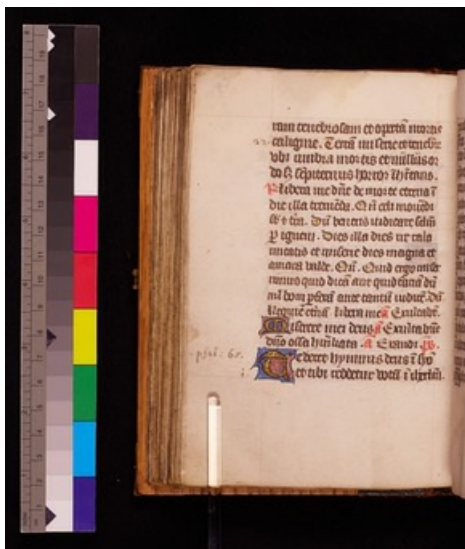 ram tenebrosam et opertā mortis
caligine. Terrā miserie et tenebr
ubi umbra mortis et nullus or
do s; sēpiternus horror īhītans.
libera me dn̄e de morte eterna ī
die illa tremēda. Qn̄ celi movēdi
st t tr̄a. Dū veneris iudicare sclm̄
ꝑ ignem. Dies illa dies ire cala
mitatis et miserie dies magna et
amara valde. Qn̄. Quid ergo miser
rimus quid dicā aut quid faciā dū
nl̄ boni ꝑferā ante tantū iudicē. Dū
Requiē etn̄ā libera me a Exultabt̄.
Miserere mei deus a Exultabūt
dn̄o ossa hūiliata. a Exaudi. ps.
Te decet hymnus deus ī syō
et tibi reddetur votū ī ihrlm̄.
psal: 65.